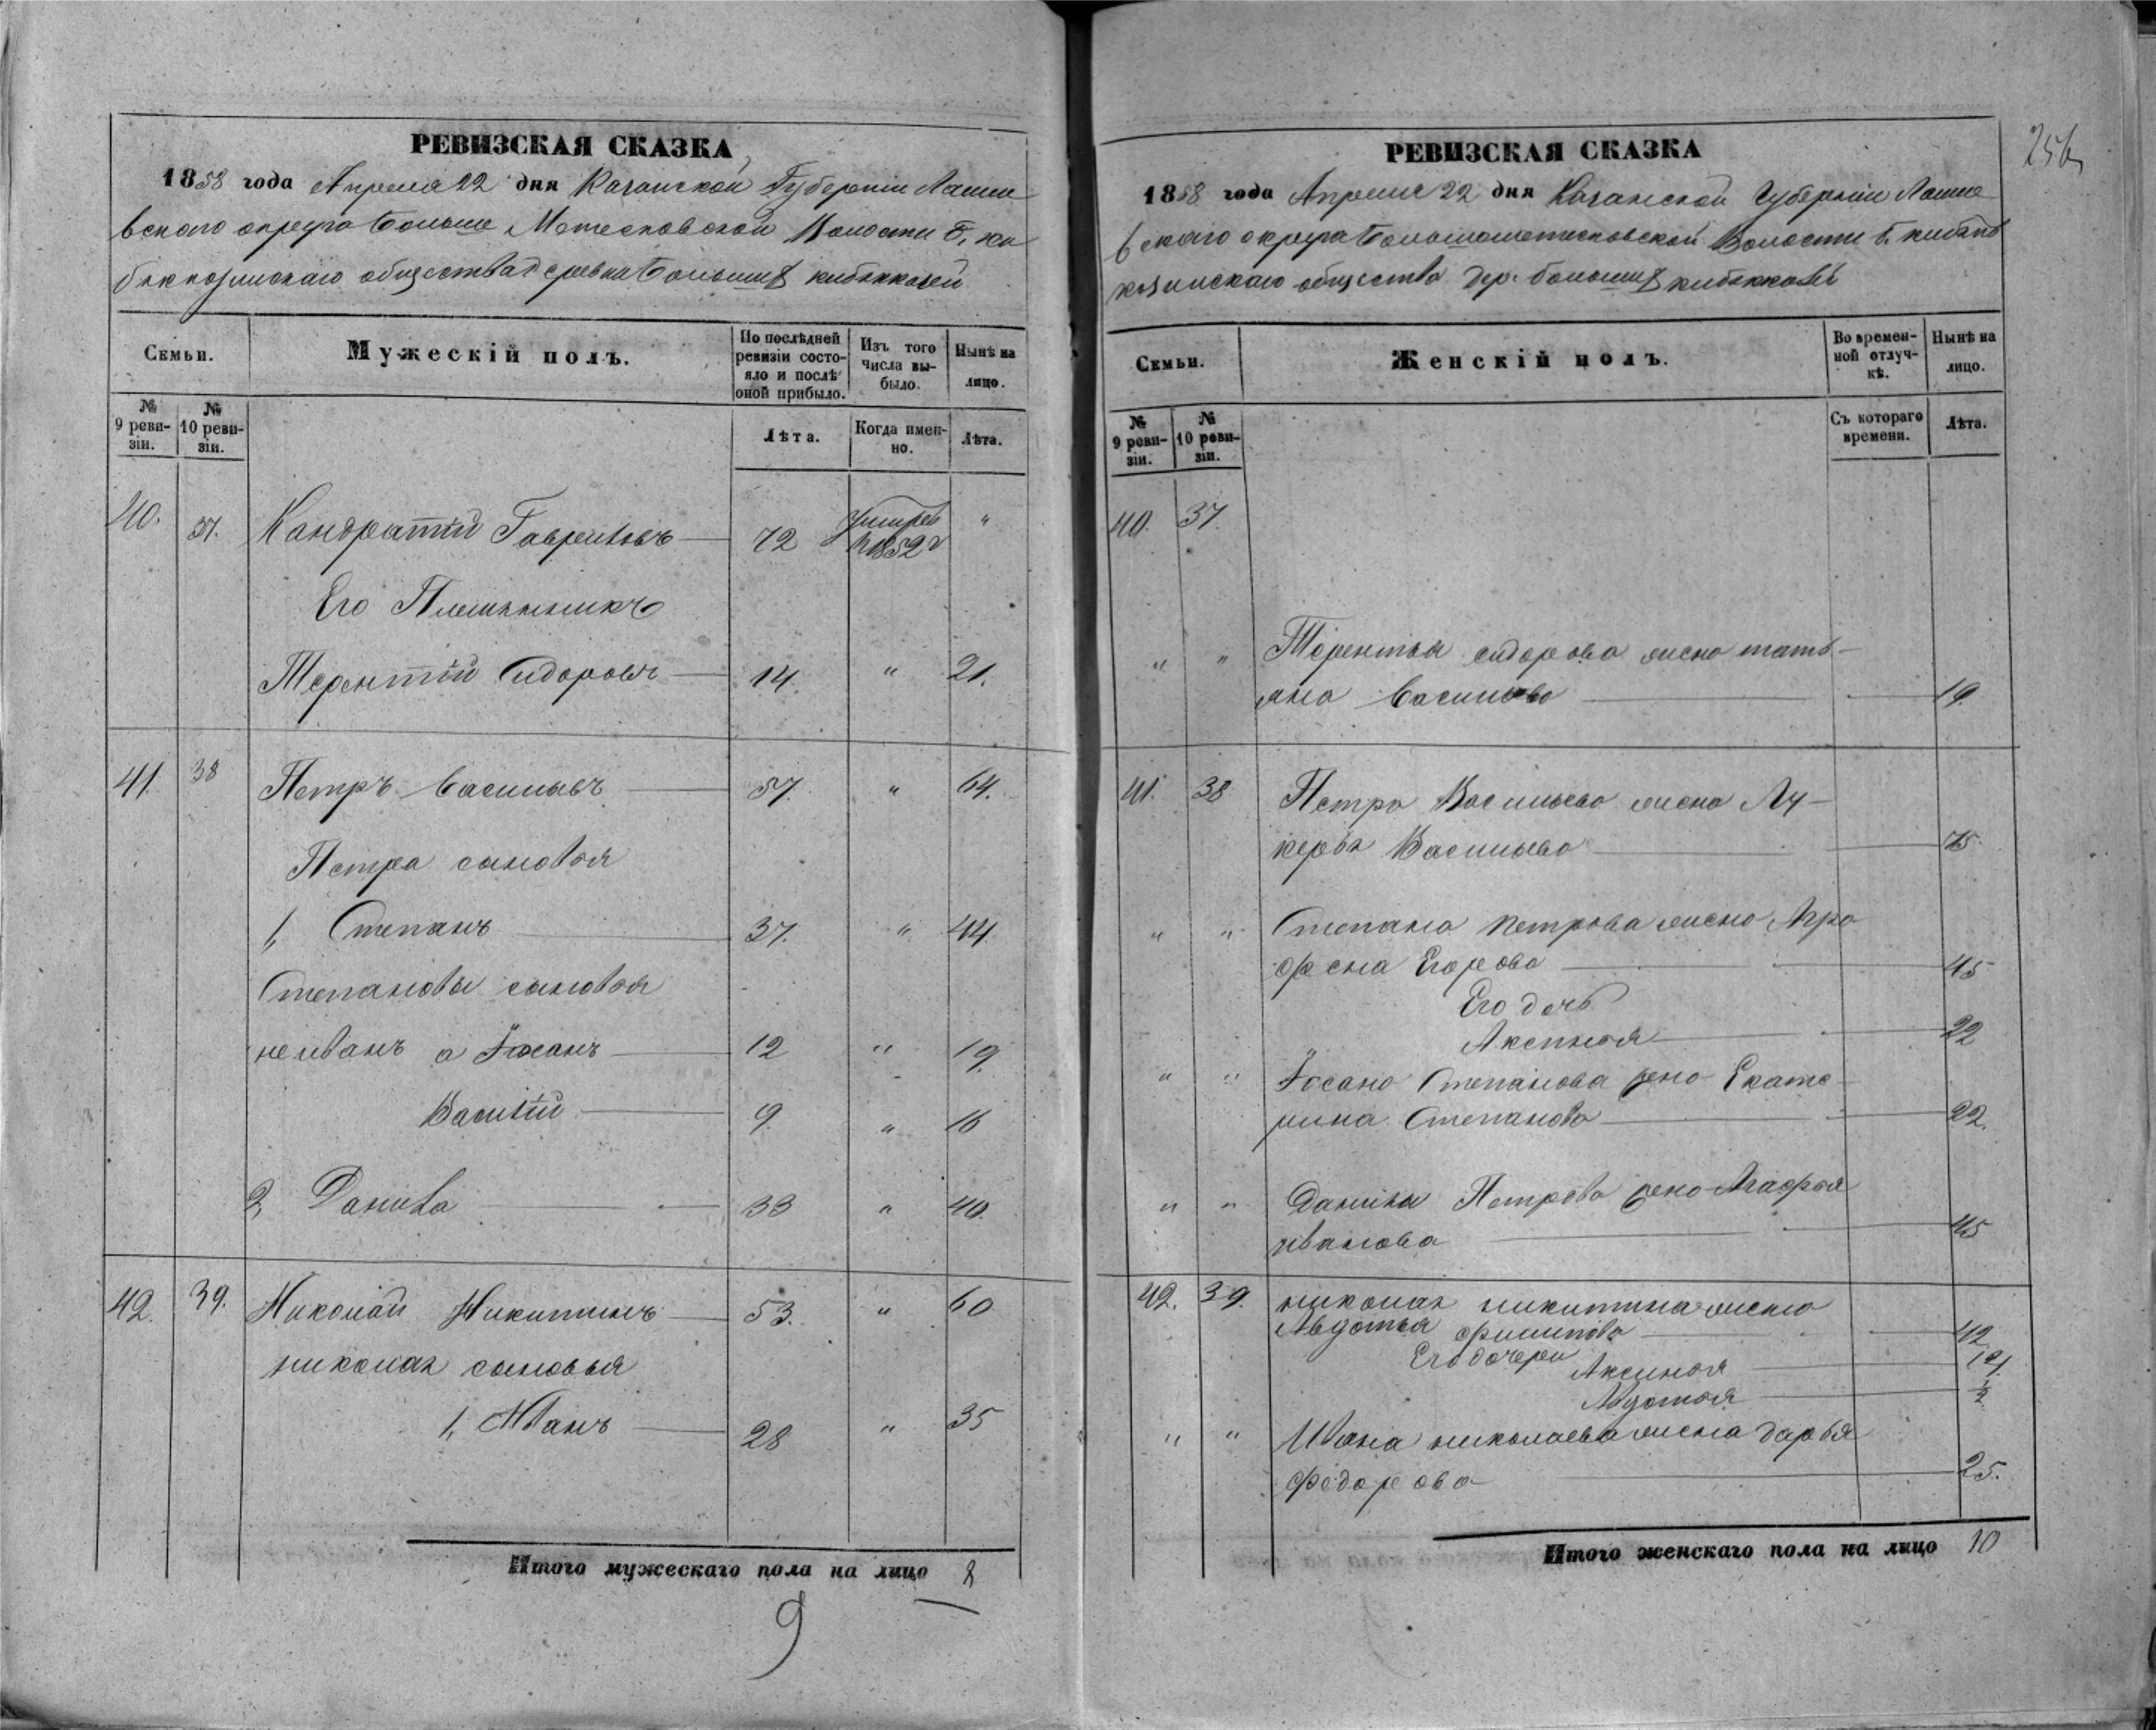 РЕВИЗСКАЯ СКАЗКА
1858 года Апреля 22 дня Казанской Губерніи Лаише
вского округа больше Метесковской Волости Б. ки
бяккозинскаго общества деревни большихъ кибяккозей
Семьи.
Мужескій полъ.
По послѣдней ревизіи состояло и послѣ оной прибыло.
Изъ того числа выбыло.
Нынѣ на лицо.
№ 9 ревизіи.
№ 10 ревизіи.
Лѣта.
Когда именно.
Лѣта.
40. 37. Кандратій Гавриловъ 72 Умиръ в 1852 г "
Его Племянникъ
Терентій Сидоровъ 14. " 21.
41. 38 Петръ Васильевъ 57. " 64.
Петра сыновья
1, Степанъ 37. " 44.
Степановы сыновья
не иванъ а Ѳасанъ 12 " 19.
Василій 9. " 16
2, Данила 33 " 40.
42. 39. Николай Никитинъ 53. " 60
николая сыновья
1, Иванъ 28 " 35
Итого мужескаго пола на лицо 8
9
256
РЕВИЗСКАЯ СКАЗКА
1858 года Апреля 22 дня Казанской Губерніи Лаише
вскаго округа большеметесковской Волости б. кибяк
козинскаго общества дер. большихъ кибяккозей
Семьи.
Женскій полъ.
Во временной отлучкѣ.
Нынѣ на лицо.
№ 9 ревизіи.
№ 10 ревизіи.
Съ котораго времени.
Лѣта.
40. 37.
" " Терентья сидорова жена тать-
яна Васильва 19.
41. 38 Петра Васильева жена Лу-
керья Васильева 75.
" " Степана петрова жена Агра
фена Егорова 45
Его дочь
Аксинья 22
" " Ѳасана Степанова жена Екате-
рина Степанова 22.
" " Данилы Петрова жена Агафья
иванова 45
42. 39. николая никитина жена
Авдотья филипова 42
Его дочери Аксинья 19.
Авдотья ½
" " Ивана николаева жена дарья
федорова 25.
Итого женскаго пола на лицо 10